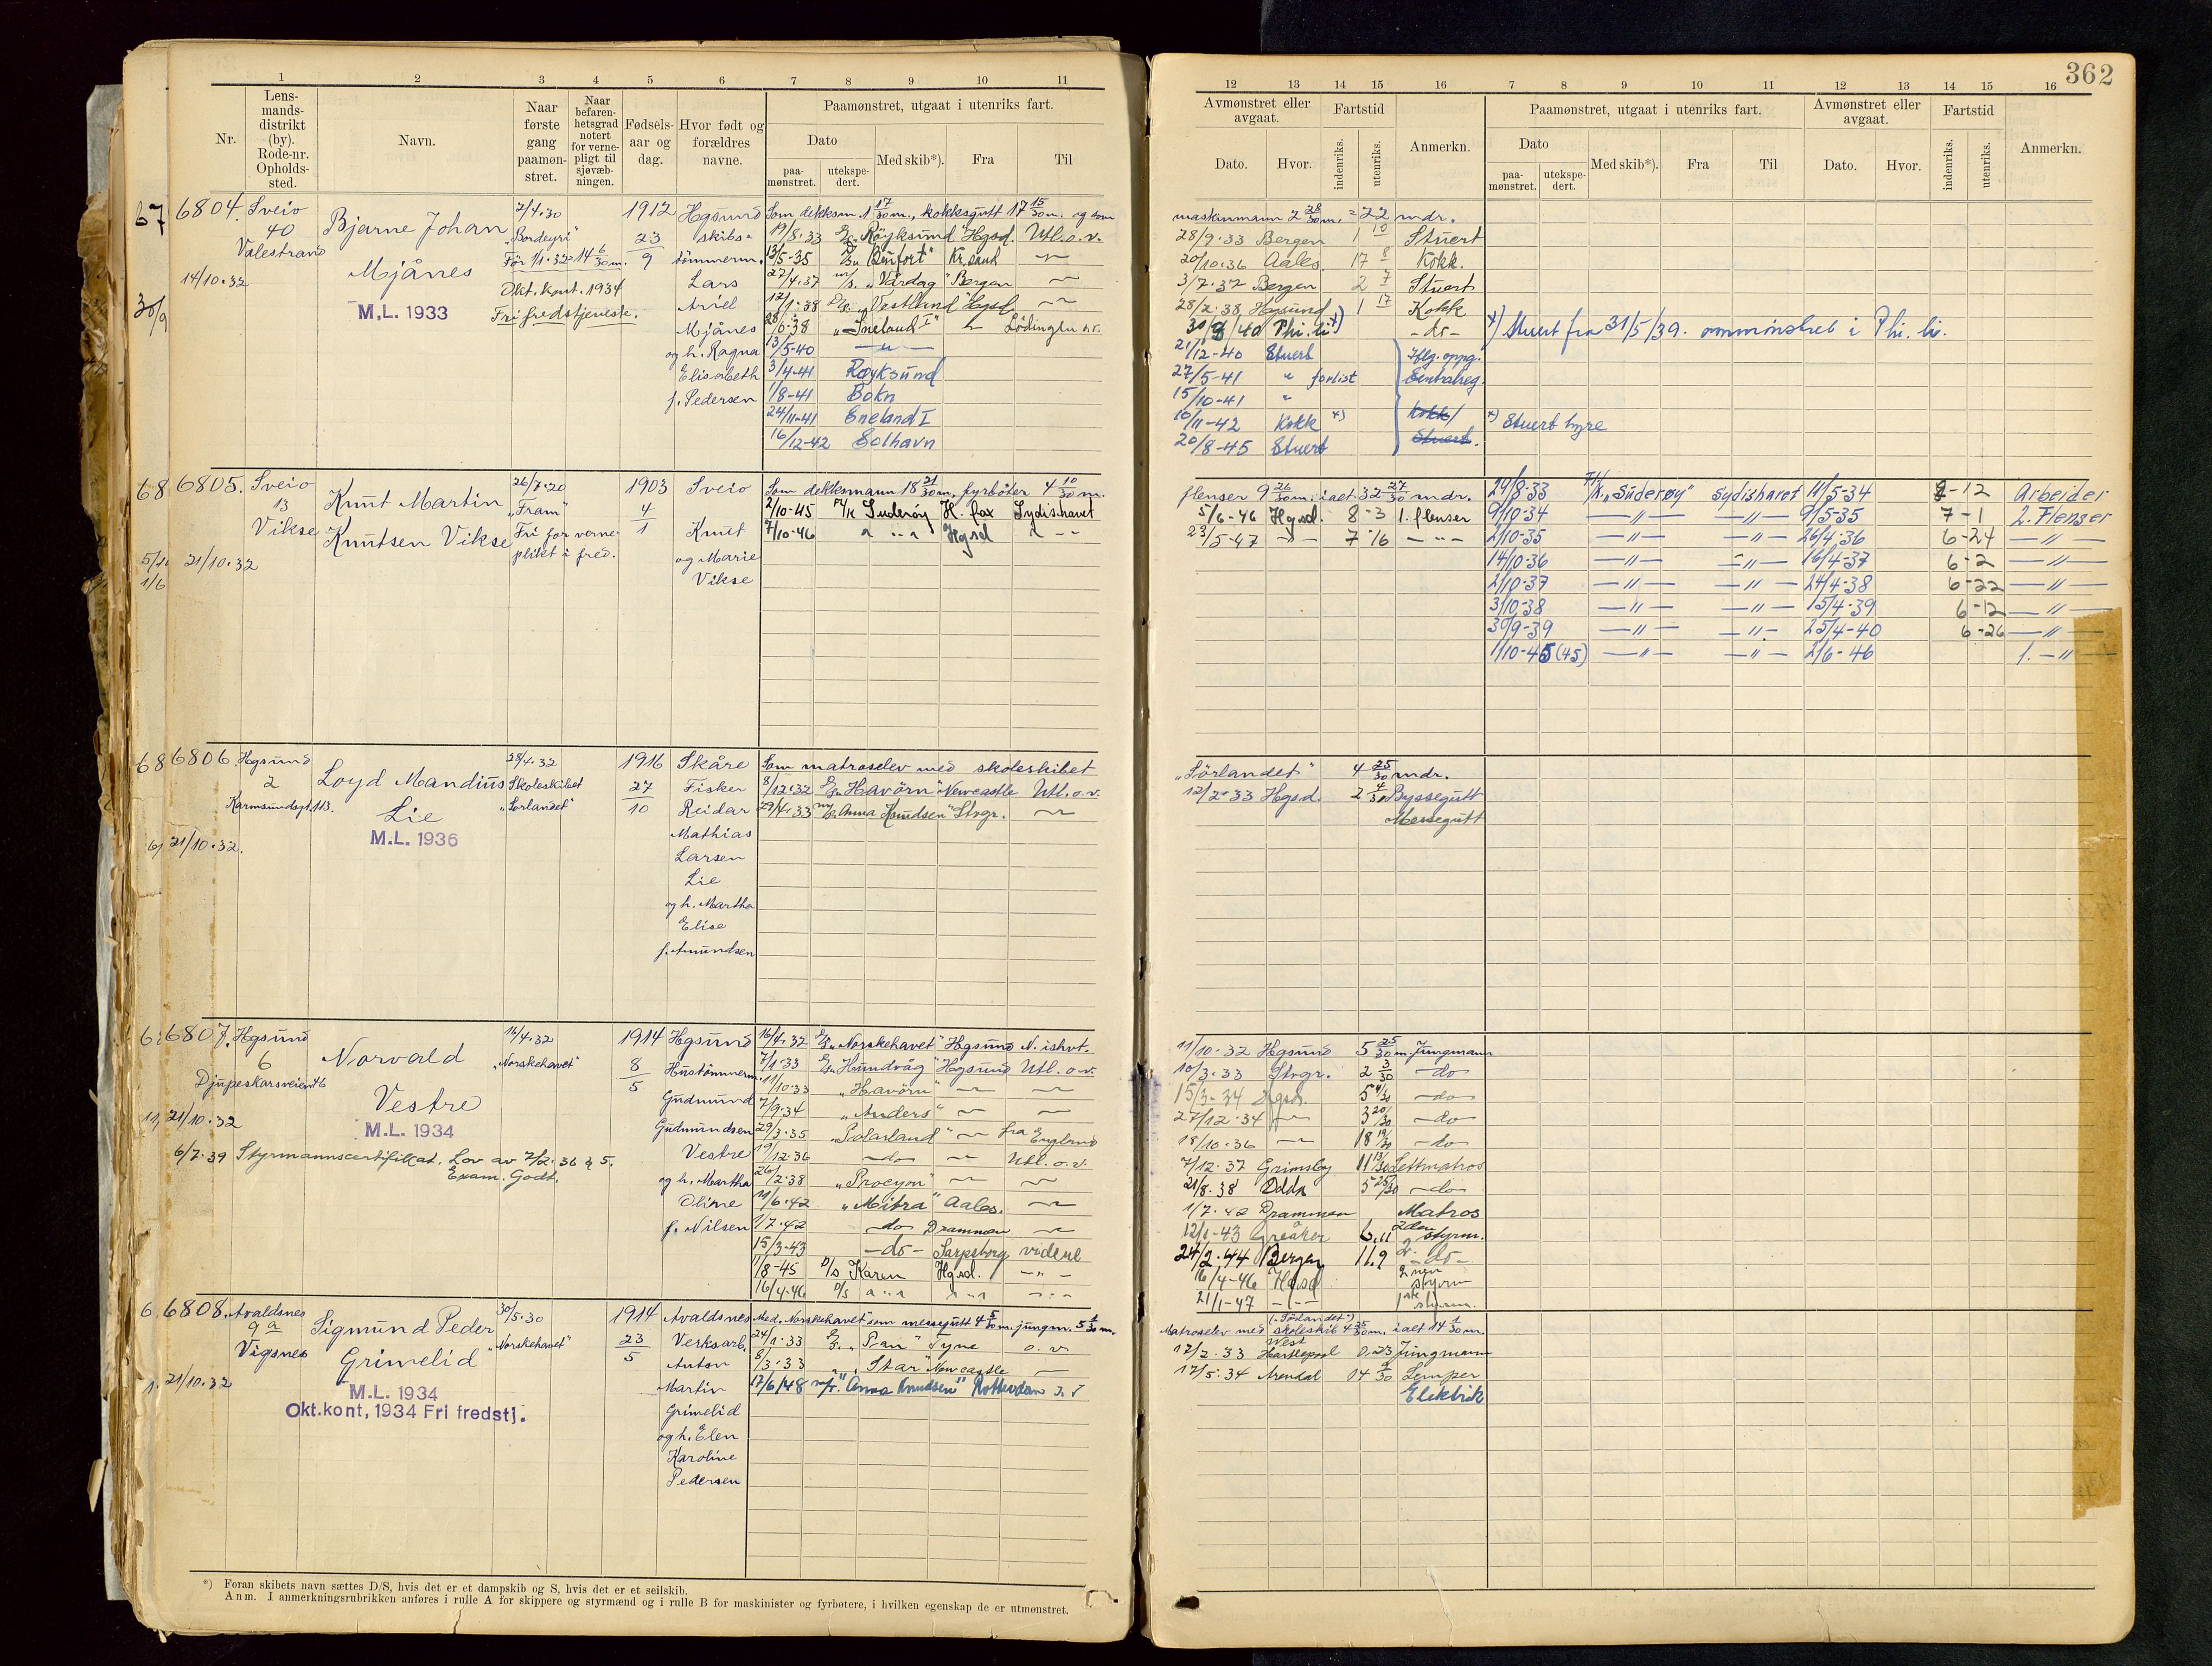 362
1 2 3 4 5 6 7 8 9 10 11
Nr.
Lens-
mands-
distrikt
(by).
Rode-nr.
Opholds-
sted.
Navn.
Naar
første
gang
paamøn-
stret.
Naar
befaren-
hetsgrad
notert
for verne-
pligt til
sjøvæb-
ningen.
Fødsels-
aar og
dag.
Hvor født og
forældres
navne.
Paamønstret, utgaat i utenriks fart.
Dato
paa-
mønstret.
utekspe-
dert.
Med skib*).
Fra
Til
12 13 14 15 16 7 8 9 10 11 12 13 14 15 16
Avmønstret eller
avgaat.
Dato.
Hvor.
Fartstid
indenriks.
utenriks.
Anmerkn.
Paamønstret, utgaat i utenriks fart.
Dato
paa-
mønstret.
utekspe-
dert.
Med skib*).
Fra
Til
Avmønstret eller
avgaat.
Dato.
Hvor.
Fartstid
indenriks.
utenriks.
Anmerkn.
6804. Sveio
40
Valestrand
14/10.32
Bjarne Johan
Mjånes
M.L. 1933
2/4.30
Før 1/1.32 = 14 6/30 m.
Okt. kont. 1934
Fri fredstjeneste.
1912
23
9
Hgsund
skibs-
tømmerm.
Lars
Ariel
Mjånes
og h. Ragna
Elisabeth
f. Pedersen
Som dekksm. 1 17/30 m., kokksgutt 17 15/30 m. og som
19/8.33 "Röyksund" Hgsd. Utl. o. v.
13/5-35 "Binfort" Kr.sand
27/4.37 m/s. "Vårdag" Bergen
12/1.38 "Vestland" Hgsd.
28/6-38 "Sneland I" Lödingen n.r.
13/5-40 - " -
3/4-41 Røyksund
1/8-41 Bokn
24/11-41 Sneland I
16/12-42 Solhavn
maskinmann 2 28/30 m. = 22 mdr.
28/9.33 Bergen 1 10 Stuert
20/10.36 Aales. 17 8 Kokk.
3/7.37 Bergen 2 7 Stuert
28/2.38 Hgsund 1 17 Kokk
30/8/40 Phi.li x) - do -
x) Stuert fra 31/5/39. ommønstret i Phi. li.
21/12-40 Stuert
27/5-41 " forlist
15/10-41 "
10/11-42 Kokk x)
20/8-45 Stuert
Iflg. oppg.
Sentralreg.
Kokk/
Stuert.
x) Stuert hyre
6805. Sveio
13
Vikse
21/10.32
Knut Martin
Knutsen Vikse
26/7.20
"Fram"
Fri for verne-
plikt i fred.
1903
4
1
Sveio
Knut
og Marie
Vikse
Som dekksmann 18 21/30 m, fyrböter 4 10/30 m.
2/10-45 Suderöy H. fax Sydishavet
7/10-46 " " Hgsd " - -
flenser 9 26/30 m. i alt 32 27/30 mdr.
5/6-46 Hgsd. 8-3 1. flenser
23/5-47 - " - 7-16 - " -
24/8.33 "Süderøy" Sydishavet 11/5-34 8-12 Arbeider
9/10-34 - " - - " - 9/5-35 7-1 2. Flenser
2/10-35 - " - - " - 26/4.36 6-24 - " -
14/10.36 - " - - " - 16/4-37 6-2 - " -
2/10-37 - " - - " - 24/4-38 6-22 - " -
3/10-38 - " - - " - 15/4-39 6-12 - " -
30/9-39 - " - - " - 25/4-40 6-26 - " -
1/10-45 (45) - " - - " - 2/6-46 1. - " -
6806. Hgsund
2
Karmsundsgt. 113.
21/10.32.
Loyd Mandius
Lie
M.L. 1936
28/4.32
Skoleskibet
"Sørlandet"
1916
27
10
Skåre
Fisker
Reidar
Mathias
Larsen
Lie
og h. Martha
Elise
f. Amundsen
Som matroselev med skoleskibet
8/12.32 "Havörn" Newcastle Utl. o. v.
29/4.33 "Anna Knudsen" Stvgr.
"Sörlandet" 4 25/30 mdr.
12/2-33 Hgsd. 2 4/30 Byssegutt
Messegutt
6807. Hgsund
6
Djupeskarsveien
21/10.32
Norvald
Vestre
M.L. 1934
6/7.39 Styrmannscertifikat. Lov av 7/2.36 § 5.
Exam. Godt.
16/4.32
"Norskehavet"
1914
8
5
Hgsund
Hustömmerm.
Gudmund
Gudmundsen
Vestre
og h. Martha
Oline
f. Nilsen
16/4.32 "Norskehavet" Hgsund N. ishvt.
7/1.33 "Hundvåg" Hgsund Utl. o. v.
11/10.33 "Havörn"
7/9.34 "Anders"
29/3.35 "Polarland" fra England
19/12.36 - do - Utl. o. v.
26/2.38 "Procyon"
11/6.42 "Mitra" Aales.
1/7.42 do Drammen
15/3-43 - do - Sarpsborg videre
1/8-45 D/S Karen Hgsd. - " -
16/4.46 D/s " "
11/10.32 Hgsund 5 25/30 m. Jungmann
10/3.33 Stvgr. 2 3/30 do
15/3-34 Hgsd. 5 4/30 do
27/12.34 3 20/30 do
18/10.36 18 19/30 do
7/12.37 Grimsby 11 13/30 Lettmatros
21/8.38 Odda 5 25/30 do
1/7.42 Drammen Matros
12/1-43 Greåker 6.11 2den styrm.
24/2.44 Bergen 11.9 2. - do -
16/4-46 Hgsd 2nen styrm
21/1-47 - " - 1ste styrm.
6808. Avaldsnes
9 a
Vigsnes
21/10.32
Sigmund Peder
Grimelid
M.L. 1934
Okt.kont, 1934 Fri fredstj.
30/5.30
"Norskehavet"
1914
23
5
Avaldsnes
Verksarb.
Anton
Martin
Grimelid
og h. Elen
Karoline
Pedersen
Med "Norskehavet" som messegutt 4 5/30 m. jungm. 5 4/30 m.
24/1.33 "Pan" Tyne o. v.
8/3.33 "Star" Newcastle
17/6/48 "Anna Knudsen" Rotterdam
("Sörlandet")
Matroselev med skoleskib 4 25/30 m. i alt 14 4/30 m.
West
17/2.33 Hartlepool 0.23 Jungmann
17/5.34 Arendal 14 9/30 Lemper
Elektrik
*) Foran skibets navn sættes D/S, hvis det er et dampskib og S, hvis det er et seilskib.
Anm. I anmerkningsrubrikken anføres i rulle A for skippere og styrmænd og i rulle B for maskinister og fyrbøtere, i hvilken egenskap de er utmønstret.